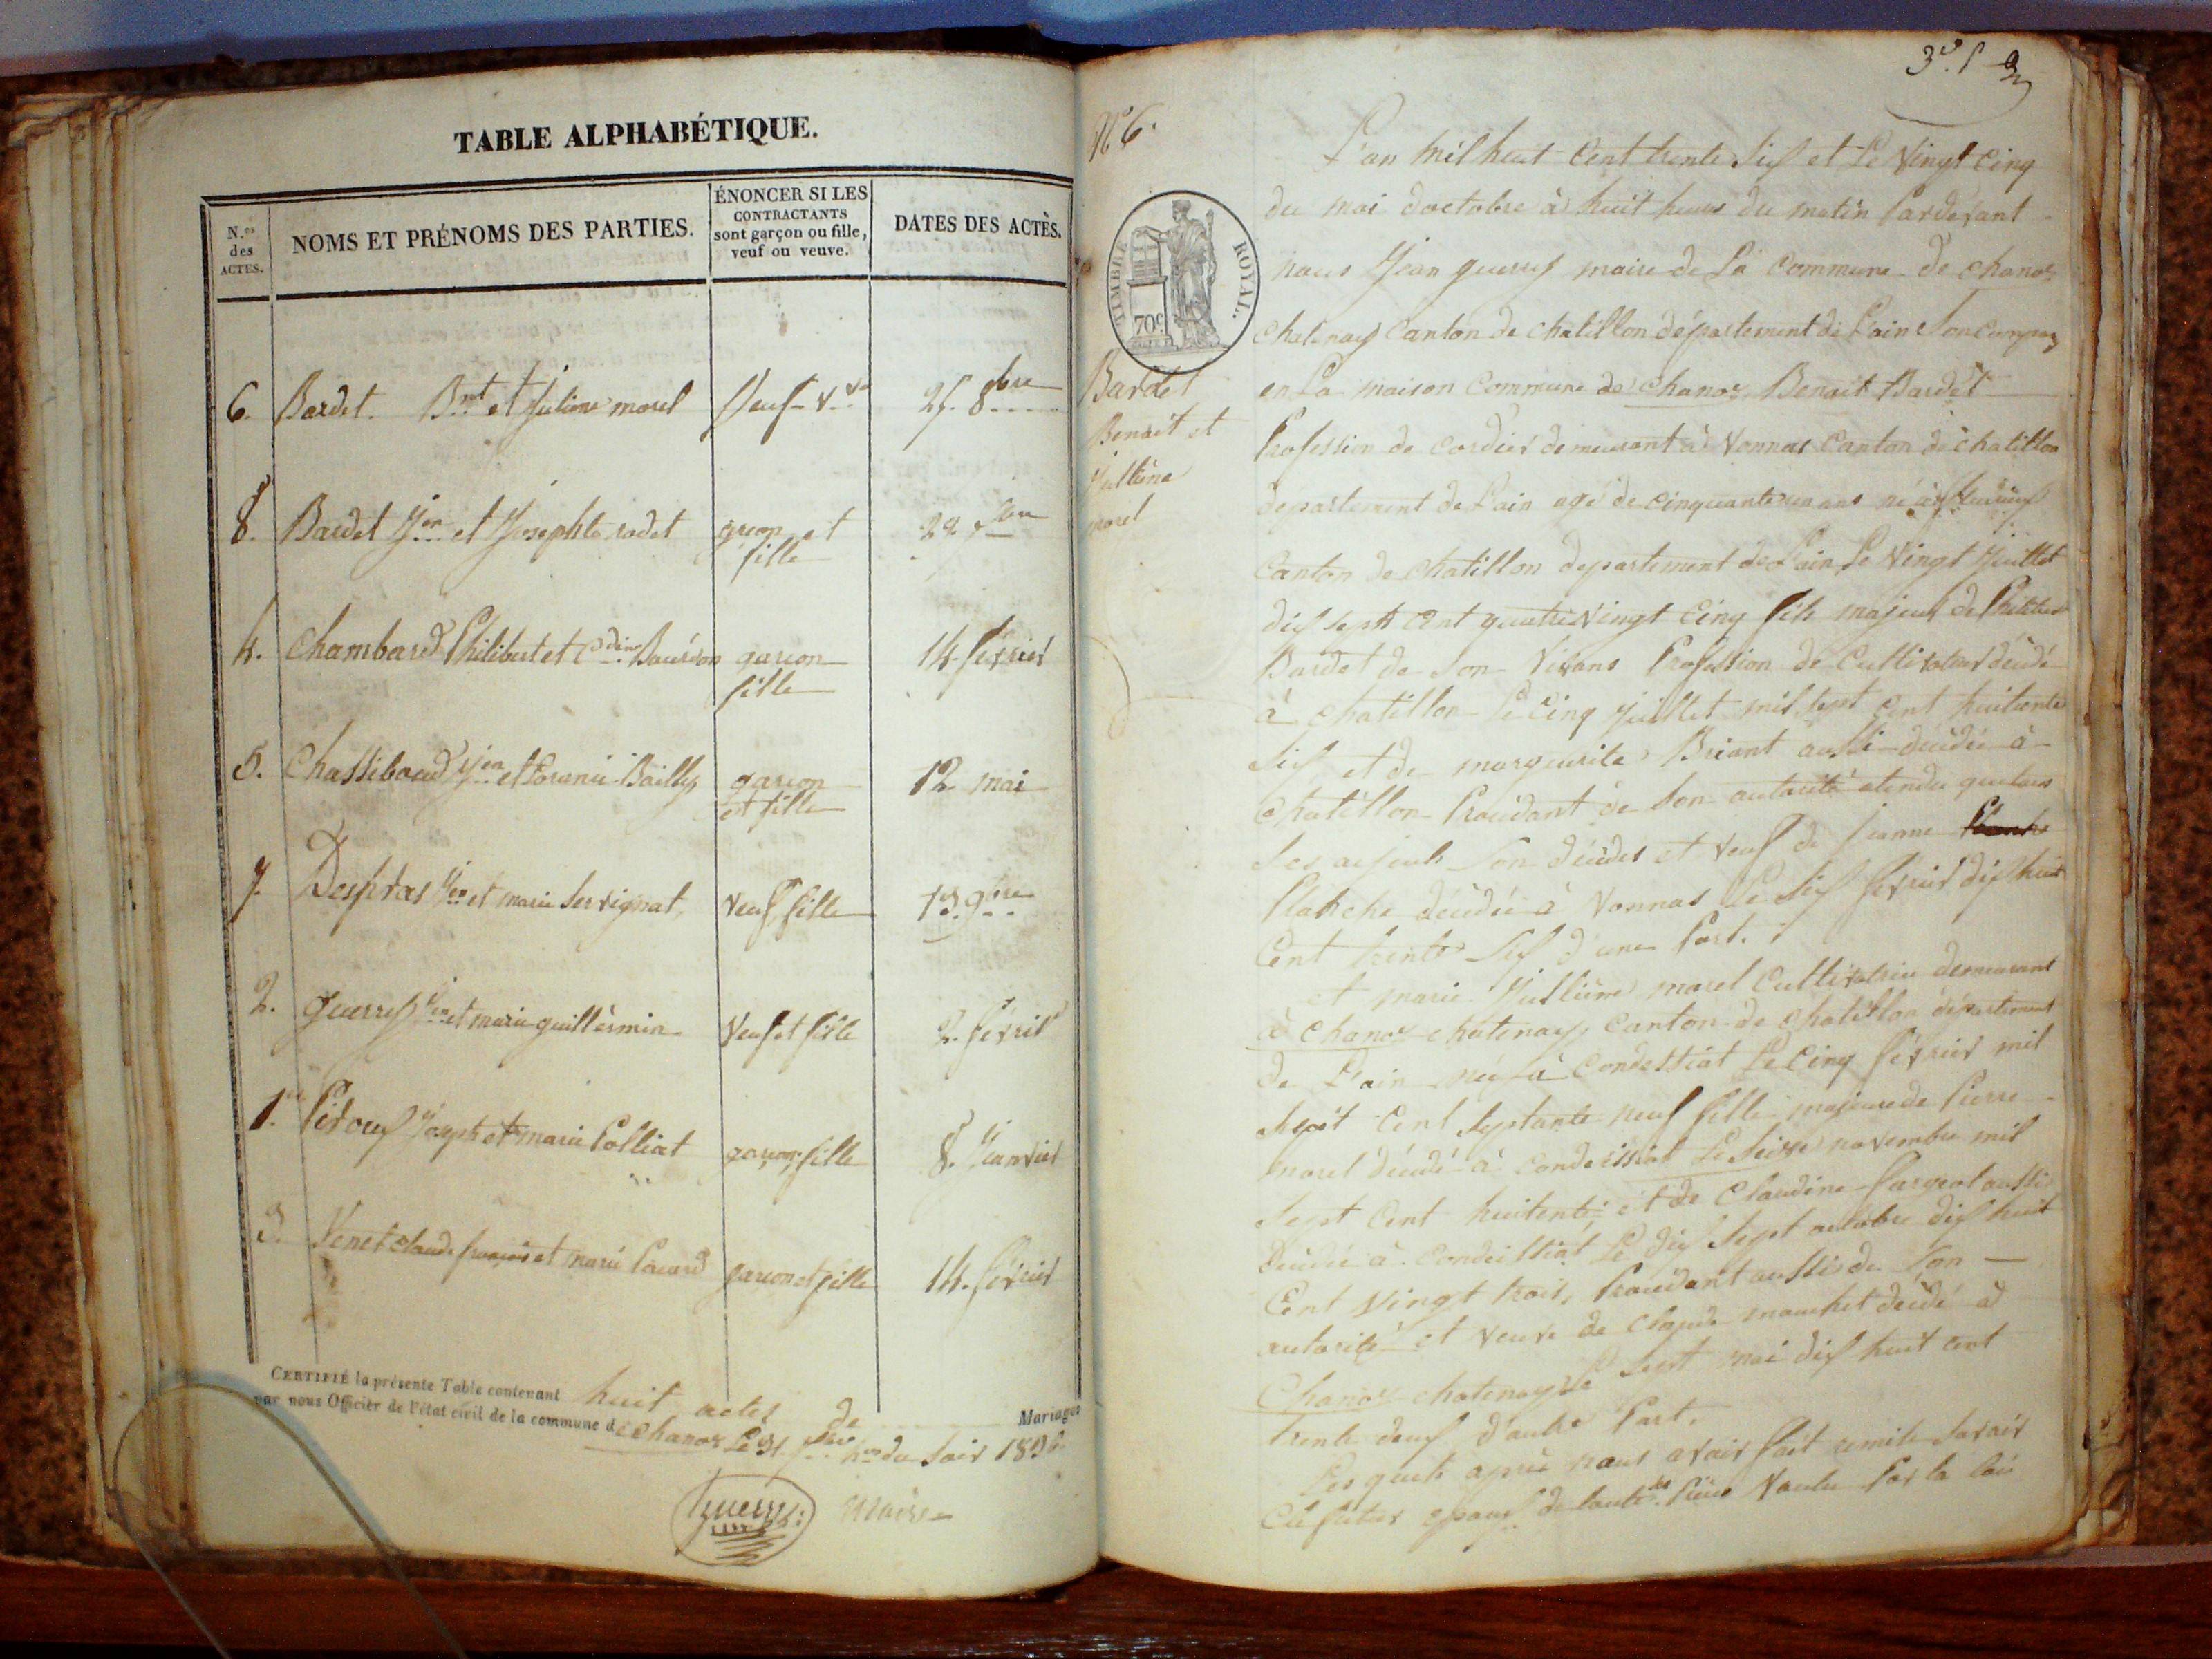 TABLE ALPHABÉTIQUE.
N.os des ACTES.
NOMS ET PRÉNOMS DES PARTIES.
ÉNONCER SI LES CONTRACTANTS sont garçon ou fille, veuf ou veuve.
DATES DES ACTES.
6. Bardet Bnt et Juliene morel Veuf Vve 25. 8bre
8. Bardet Jen et Josephte rodet garcon et fille 22
4. Chambard Philibert et garcon fille 14 février
5. Chassiboud Jen et Bailly garcon et fille 12 mai
7. Despras Jen et marie Servignat, veuf, fille 13 9bre
2. guerry Jen et marie guillermin Veuf et fille 2. févril
1. Joseph et marie Polliat garcon fille 8. Janvier
3. Venet Claude françois et marie garcon et fille 14. février
CERTIFIÉ la présente Table contenant huit actes de Mariages
par nous Officier de l'état civil de la commune de chanoz le 31 du Soir 1836
Guerry maire
N° 6.
TIMBRE ROYAL.
70c
Bardet
Benoit et
Julliene
morel
L'an mil huit Cent trente Six et Le Vingt Cinq
du moi doctobre à huit heures du matin Pardevant
nous Jean guerry maire de La Commune de chanoz
chatenay Canton de chatillon département de L'ain
en La maison Commune de chanoz Benoit Bardet
Profession de Cordier demeurant à Vonnas Canton de chatillon
departement de L'ain agé de cinquante un ans né à
Canton de chatillon departement de L'ain Le Vingt Juillet
dix sept Cent quatre Vingt Cinq fils majeur de
Bardet de Son Vivans Profession de Cultivateur décédé
à chatillon le cinq juillet mil sept Cent huitante
Six et de marguerite Briant aussi décédée à
chatillon Procédant de Son autorité atendu que tous
Ses ayeuls Son décédés et Veuf de Jeanne
Planche décédée à Vonnas Le Six février dix huit
Cent trente Six d'une Part.
et marie Jullière morel Cultivatrice demeurant
à chanoz chatenay, Canton de chatillon département
de L'ain née à Condessiat Le Cinq février mil
Sept Cent Septante neuf fille majeure de Pierre
morel décédé à Condessiat Le Seize novembre mil
Sept Cent huitente et de Claudine aussi
décédée à Condeissiat Le dix Sept octobre dix huit
Cent Vingt trois, Procédant aussi de Son
autorité et Veuve de Claude décédé à
Chanoz chatenay Le Sept mai dix huit cent
trente deux d'autre Part.
Les quels après nous avoir fait remite Savoir
Ce futur epoux de toute des Pièces Voulu Par la loi